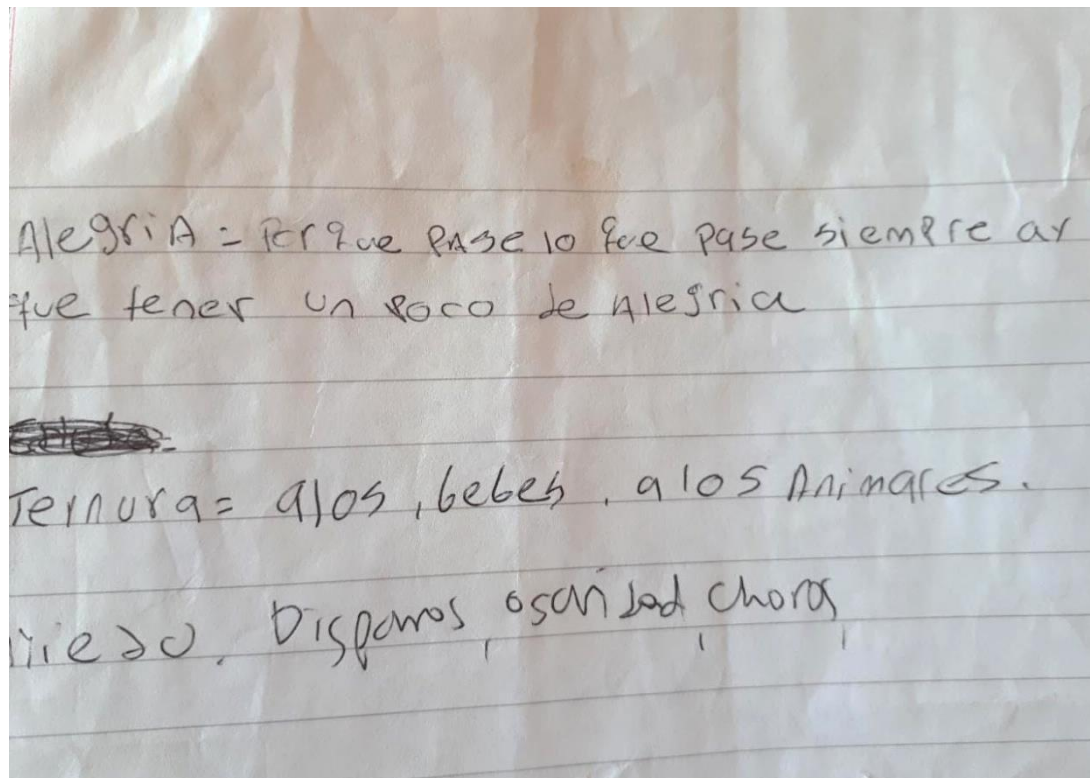 AlegriA = Porque PASe lo que pase siempre ay
que tener un poco de Alegria
Ternura = a los, bebes, a los Animales.
miedo. Disparos, oscuridad, choros,